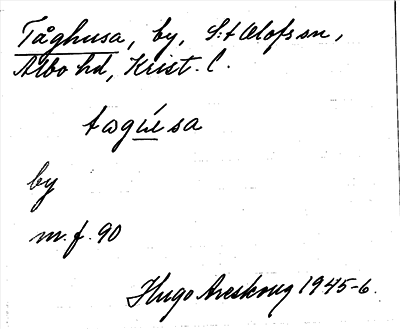 Tåghusa, by, S:t Olofs sn,
Albo hd, Krist. l.
tωgúsa
by
m.f. 90
Hugo Areskoug 1945-6.